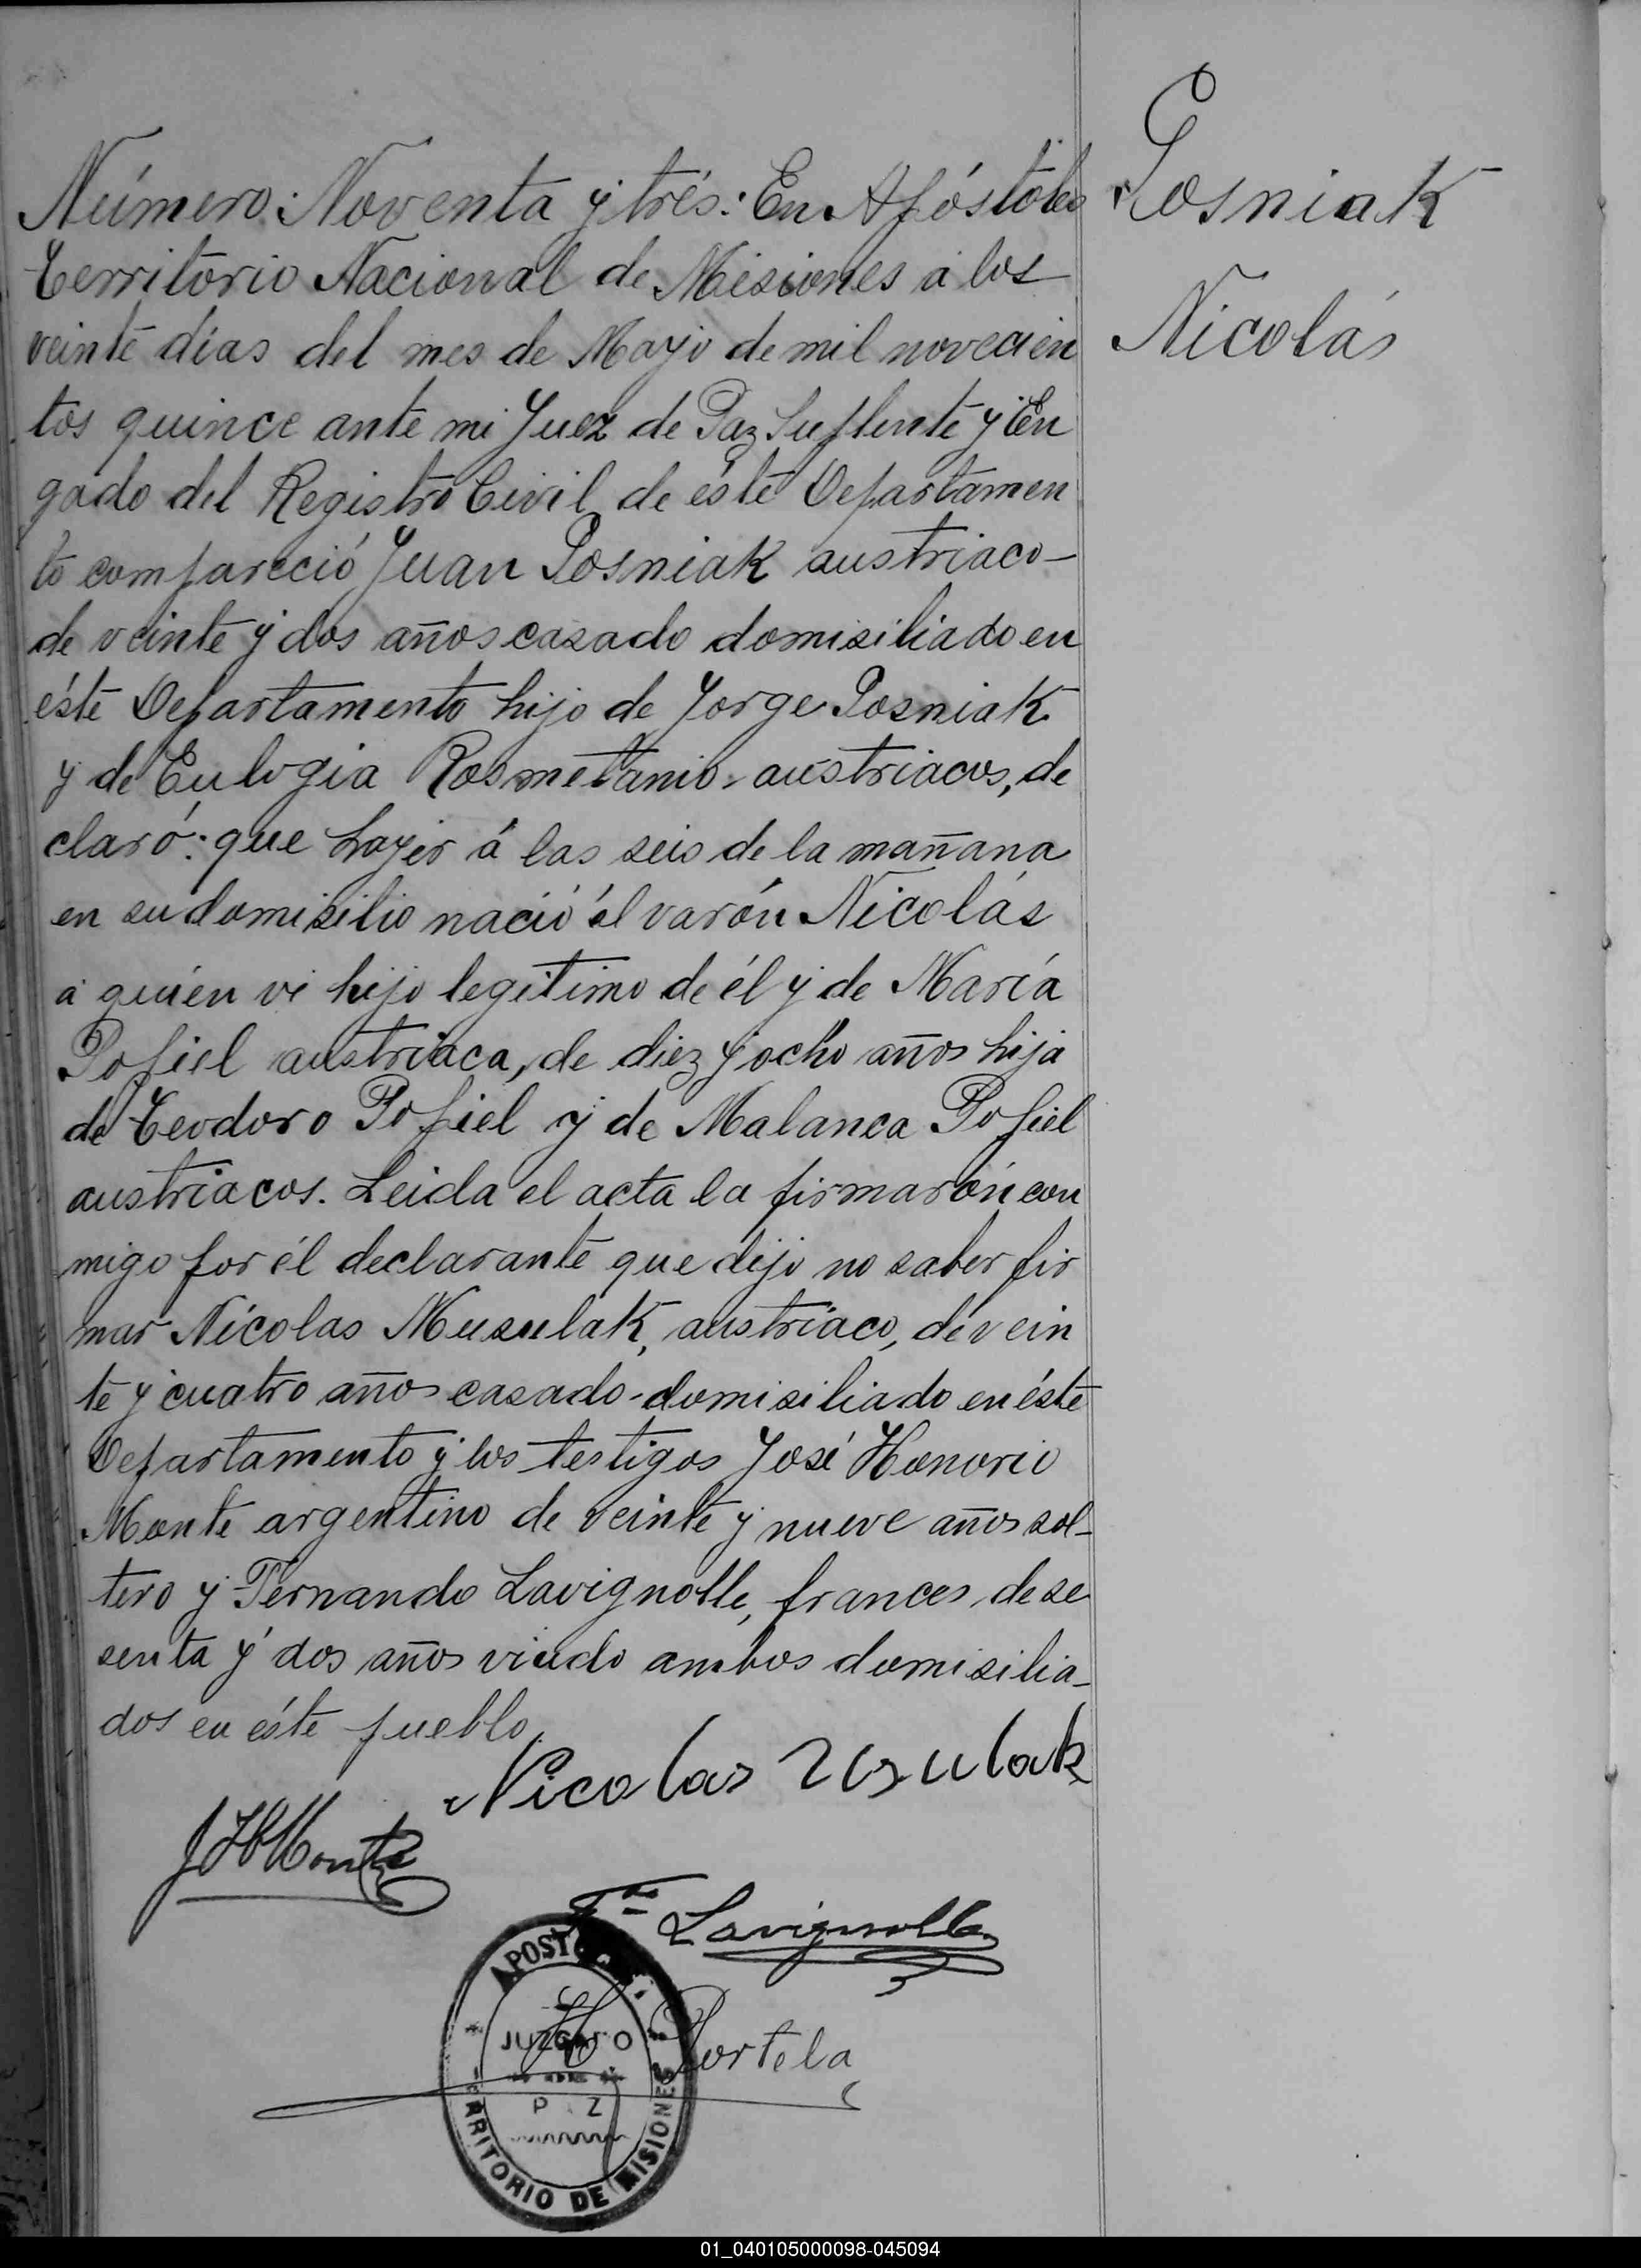 Número: Noventa y trés: En Apóstoles
Territorio Nacional de Misiones á los
veinte días del mes de Mayo de mil novecien
tos quince ante mi Juez de Paz Suplente y En
gado del Registro Civil de éste Departamen
to compareció Juan Posniak austriaco-
de veinte y dos años casado domisiliado en
éste Departamento hijo de Jorge Posniak
y de Eulogia Rosmetanio austriacos, de
claró: que hayer á las seis de la mañana
en su domisilio nació él varón Nicolás
á quién vi hijo legitimo de él y de María
Popiel austriaca, de diez y ocho años hija
de Teodoro Popiel y de Malanca Popiel
austriacos. Leida el acta la firmarón con
migo por él declarante que dijo no saber fir
mar Nicolas Musulak, austriaco, de vein
te y cuatro años casado-domisiliado en éste
Departamento y los testigos José Honorio
Monte argentino de veinte y nueve años sol-
tero y Fernando Lavignolle, frances, de se
senta y dos años viudo ambos domisilia-
dos en éste pueblo.
Posniak
Nicolás
Nicolas Usulak
J H Monte
Lavignolle
Portela
APOSTOLES
JUZGADO
DE
P Z
TERRITORIO DE MISIONES
01_040105000098-045094